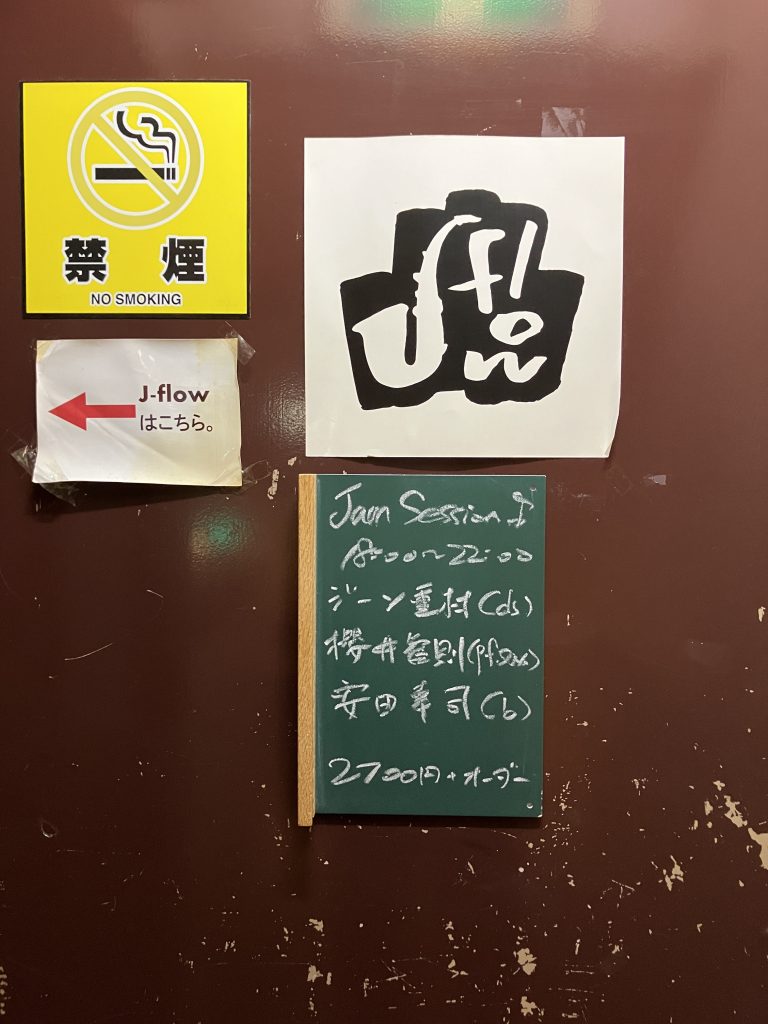 禁煙
NO SMOKING
J-flow
はこちら。
J flow
Jam Session
18:00～22:00
ジーン重村(ds)
櫻井
安田幸司(b)
2700円+オーダー